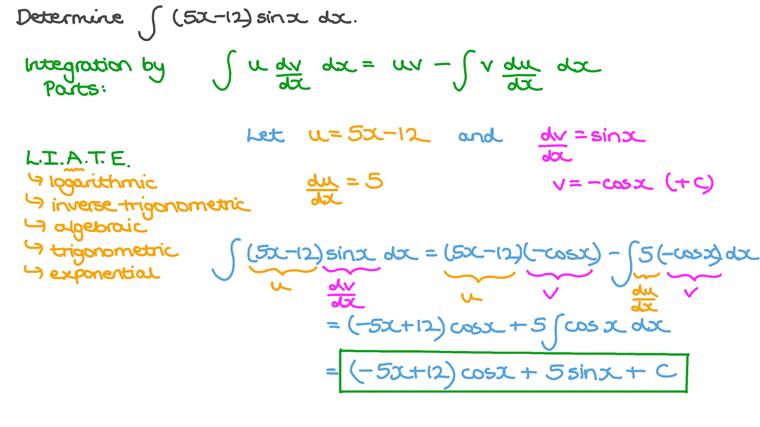 Determine ∫ (5x-12) sinx dx.
Integration by Parts: ∫ u dv/dx dx = uv - ∫ v du/dx dx
Let u = 5x-12 and dv/dx = sinx
du/dx = 5 v = -cosx (+c)
L.I.A.T.E.
↳ logarithmic
↳ inverse trigonometric
↳ algebraic
↳ trigonometric
↳ exponential
∫ (5x-12) sinx dx = (5x-12)(-cosx) - ∫ 5(-cosx) dx
u dv/dx u v du/dx v
= (-5x+12) cosx + 5 ∫ cosx dx
= (-5x+12) cosx + 5 sinx + C